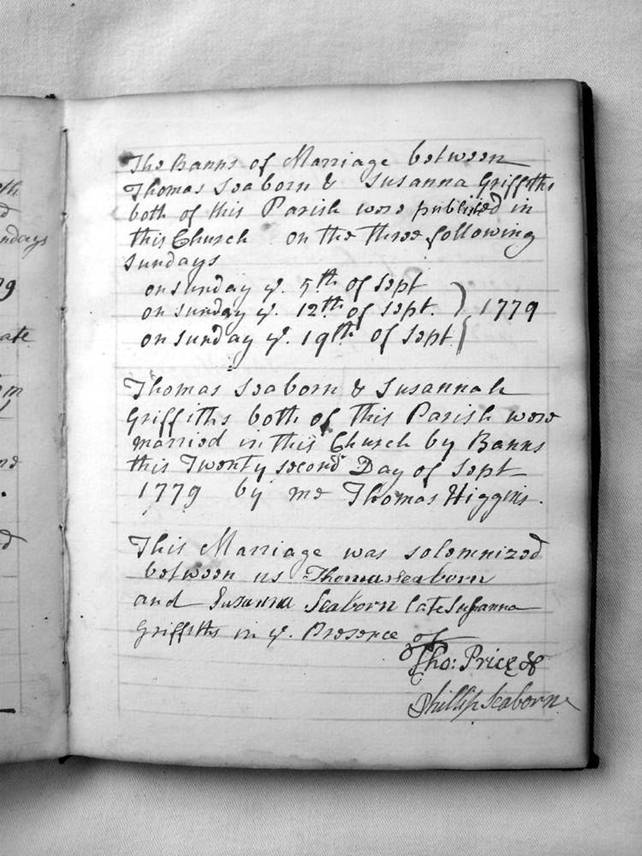 th
d
ndays
9
ate
m
d
The Banns of Marriage between
Thomas Seaborn & Susanna Griffiths
both of this Parish were published in
this Church on the three following
Sundays
on sunday ye. 5th of Sept
on sunday ye. 12th of Sept. } 1779
on sunday ye. 19th of Sept
Thomas Seaborn & Susannah
Griffiths both of this Parish were
married in this Church by Banns
this Twenty second Day of Sept
1779 by me Thomas Higgins.
This Marriage was solemnized
between us Thomas Seaborn
and Susanna Seaborn late Susanna
Griffiths in ye. Presence of
Tho: Price &
Phillip Seaborne